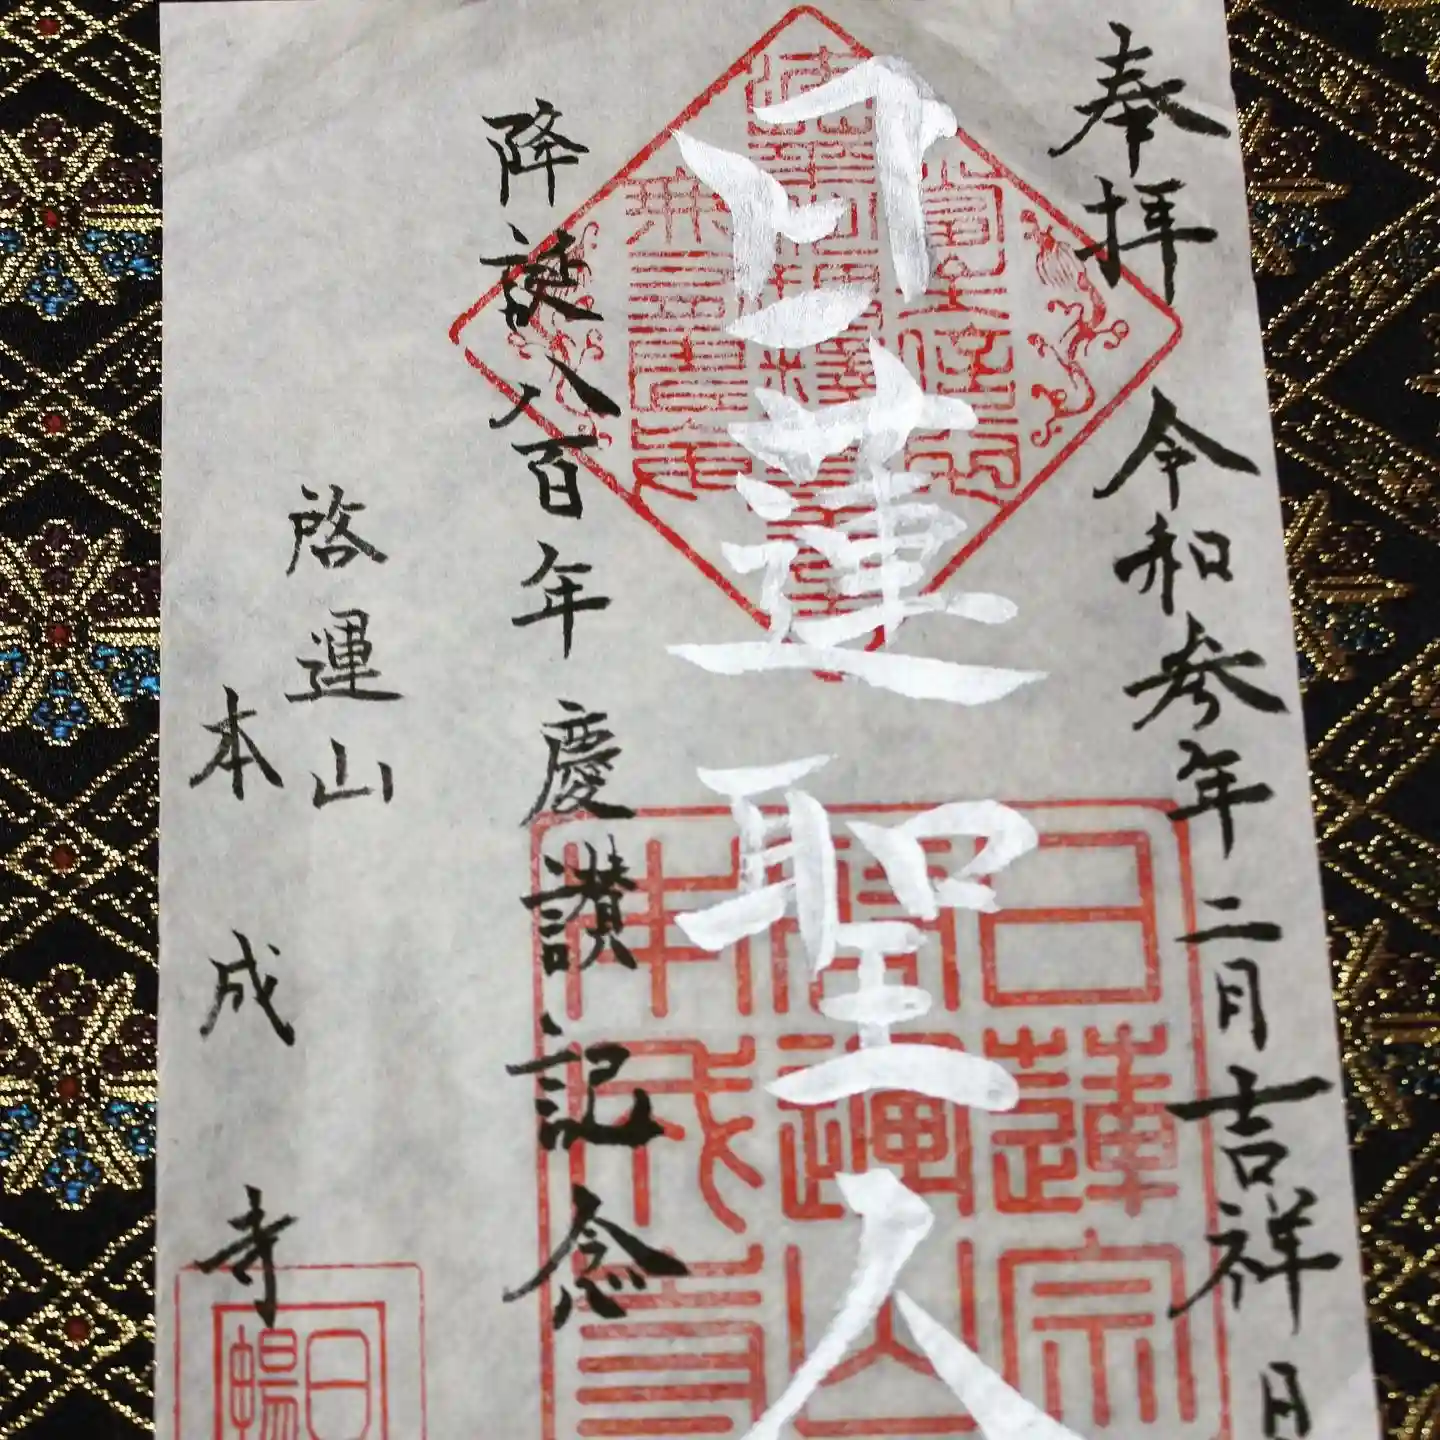 奉拝 令和参年二月吉祥日
日蓮聖人
降誕八百年慶讃記念
啓運山
本成寺
日蓮宗
啓運山
本成寺